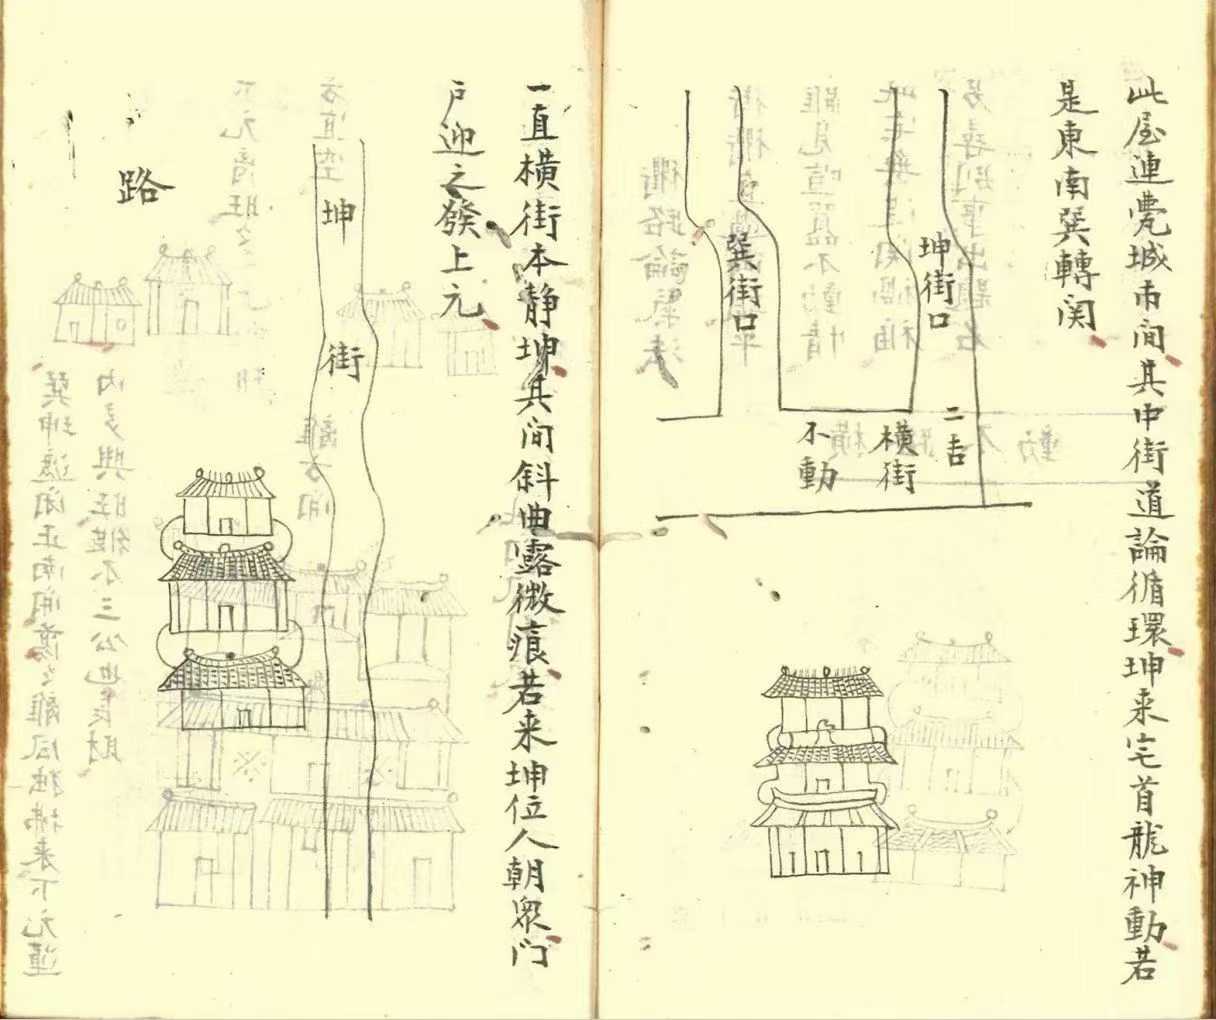 此屋連甍城市间其中街道論循環坤来宅首龍神動若
是東南巽轉関
坤街口
巽街口
二吉
横街
不動
一直横街本静坤其间斜曲露微痕若来坤位人朝衆门
户迎之發上元
坤街
路